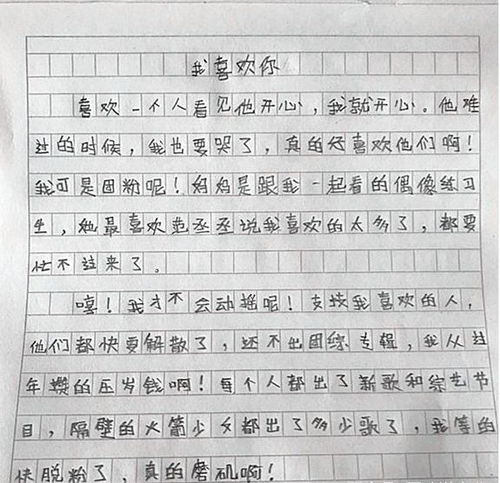 我喜欢你
喜欢一个人看见他开心，我就开心。他难
过的时候，我也要哭了，真的还喜欢他们啊！
我可是团粉呢！妈妈是跟我一起看的偶像练习
生，她最喜欢范丞丞说我喜欢的太多了，都要
忙不过来了。
嘻！我才不会动摇呢！支持我喜欢的人，
他们都快要解散了，还不出团综专辑，我从过
年攒的压岁钱啊！每个人都出了新歌和综艺节
目，隔壁的火箭少女都出了多少歌了，我等的
快脱粉了，真的磨矶啊！